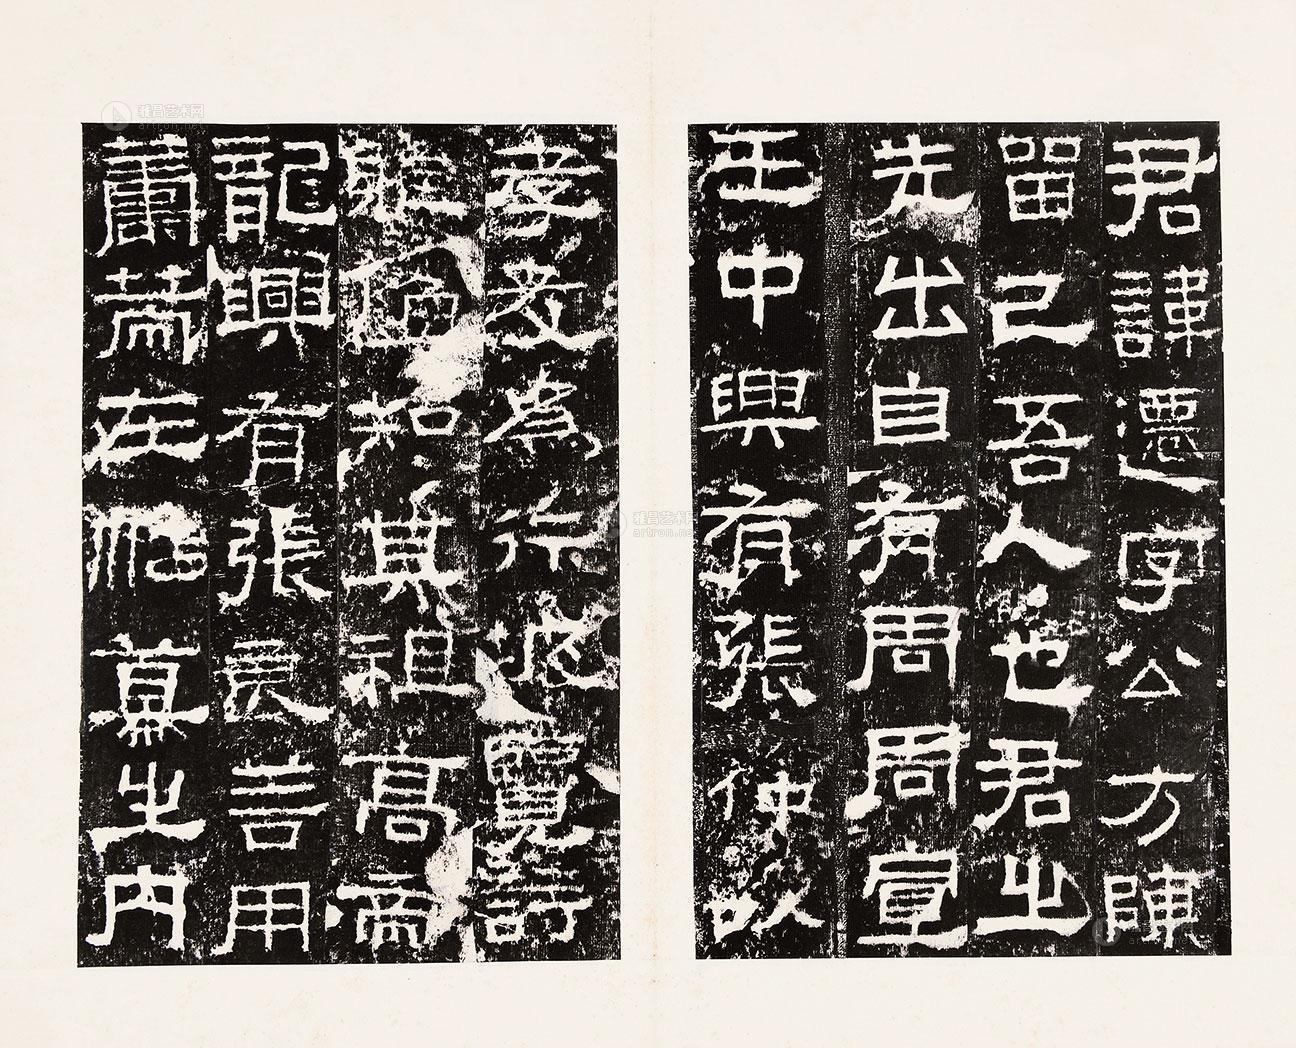 君諱遷字公方陳
留己吾人也君之
先出自有周周宣
王中興有張仲以
孝友為行披覽詩
雅煥知其祖高帝
龍興有張良善用
籌策在帷幕之內
雅昌艺术网
artron.net